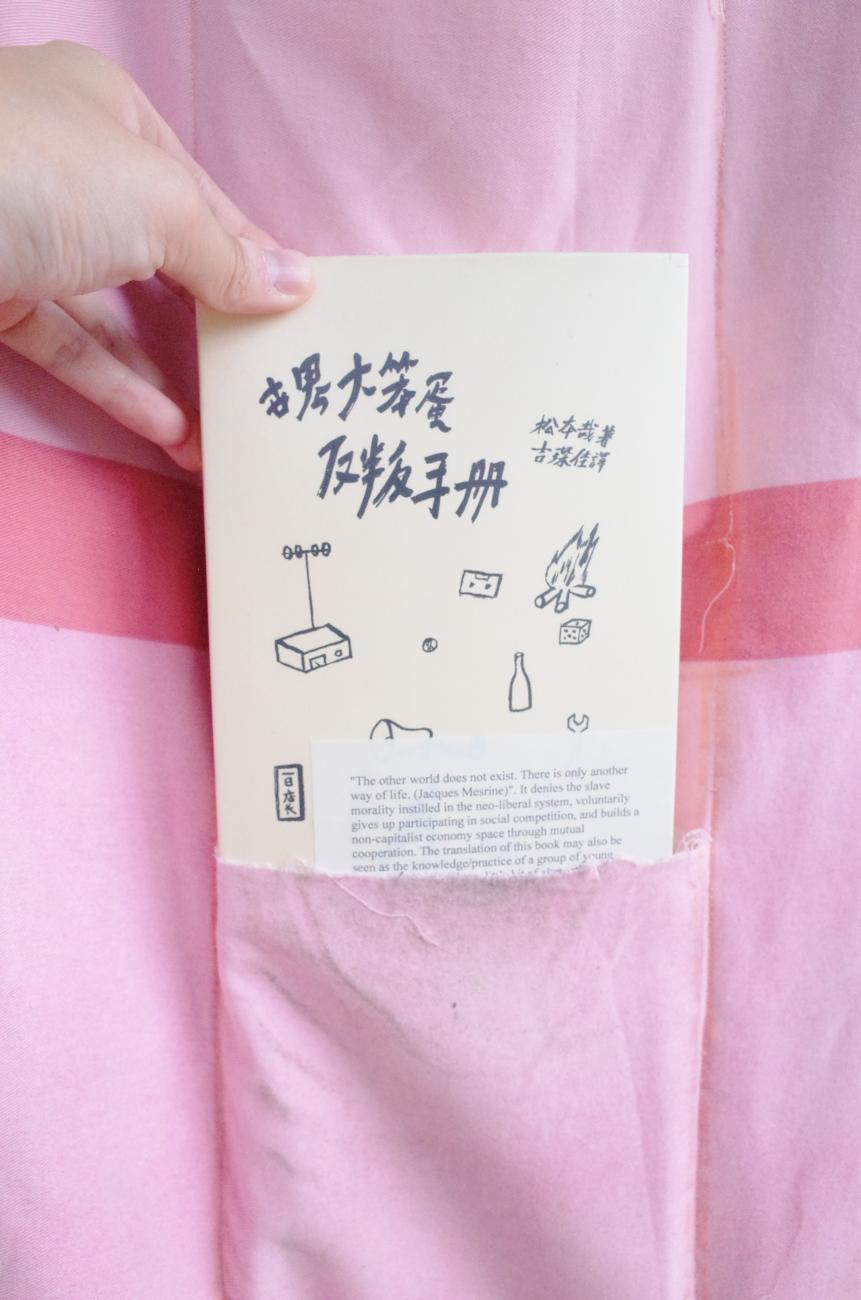 世界大笨蛋
反叛手册
松本哉著
吉琛佳譯
一日店长
"The other world does not exist. There is only another
way of life. (Jacques Mesrine)". It denies the slave
morality instilled in the neo-liberal system, voluntarily
gives up participating in social competition, and builds a
non-capitalist economy space through mutual
cooperation. The translation of this book may also be
seen as the knowledge/practice of a group of young